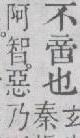 不啻也
玄
秦
阿智。惡乃